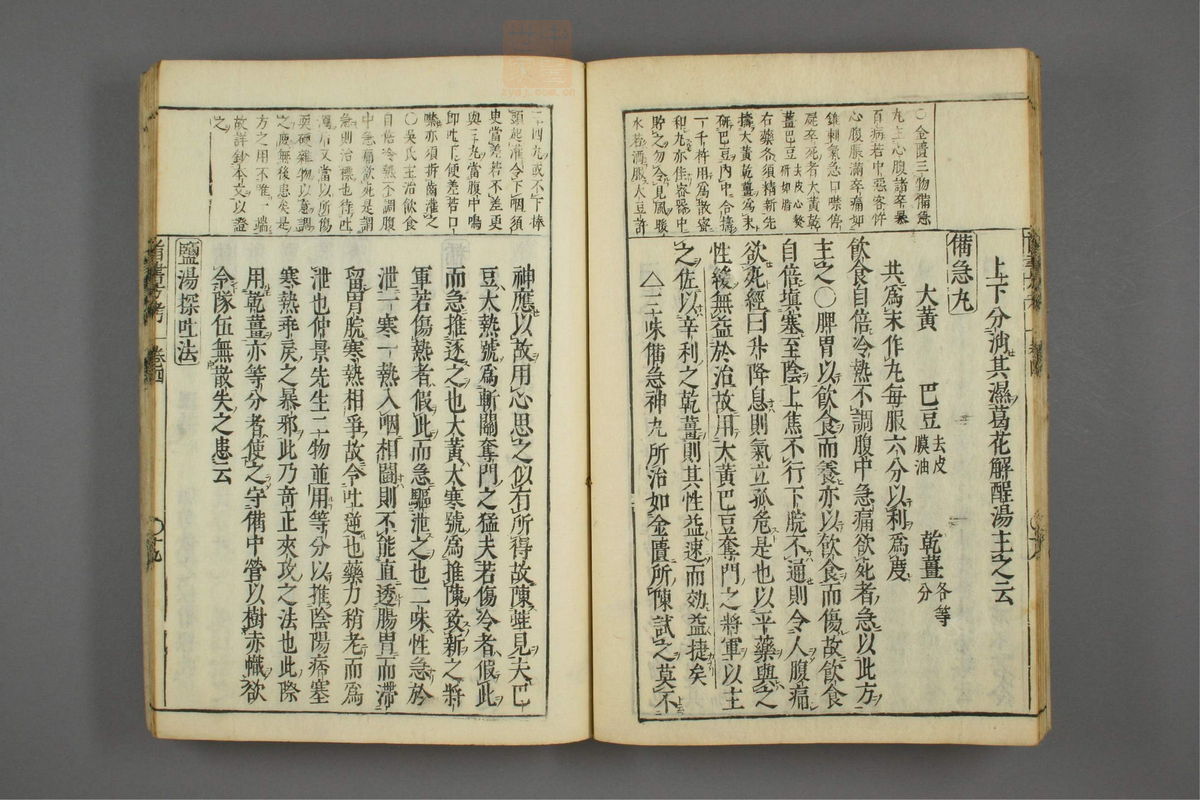 〇金匱三物備急
丸主心腹諸卒暴
百病若中惡客忤
心腹脹滿卒痛如
錐刺氣急口噤停
屍卒死者大黃乾
薑巴豆去皮心熬研如脂
右藥各須精新先
擣大黃乾薑爲末
研巴豆內中合擣
一千杵用爲散蜜
和丸亦佳密器中
貯之勿令見風
水若酒服大豆許
上下分消其濕葛花解酲湯主之云
備急丸
大黃 巴豆去皮膜油 乾薑各等分
共爲末作丸每服六分以利爲度
飲食自倍冷熱不調腹中急痛欲死者急以此方
主之〇脾胃以飲食而養亦以飲食而傷故飲食
自倍塡塞至陰上焦不行下脘不通則令人腹痛
欲死經曰升降息則氣立孤危是也以平藥與之
性緩無益於治故用大黃巴豆奪門之將軍以主
之佐以辛利之乾薑則其性益速而効益捷矣
△三味備急神丸所治如金匱所陳試之莫不
二四丸或不下捧
頭起灌令下咽須
臾當差若不差更
與三丸當腹中鳴
卽吐下便差若口
噤亦須折齒灌之
〇吳氏主治飲食
自倍冷熱不調腹
中急痛欲死是謂
急則治標也待吐
瀉后又當以所傷
硬雜物以意調
之庶無後患矣是
方之用不唯一端
故詳鈔本文以證
之
神應以故用心思之似有所得故陳蝰見夫巴
豆大熱號爲斬關奪門之猛夫若傷冷者假此
而急推逐之也大黃大寒號爲推陳致新之將
軍若傷熱者假此而急驅泄之也二味性急於
泄一寒一熱入咽相鬪則不能直透腸胃而滯
留胃脘寒熱相爭故令吐逆也藥力稍老而爲
泄也仲景先生二物並用等分以推陰陽痞塞
寒熱乖戾之暴邪此乃奇正夾攻之法也此際
用乾薑亦等分者使之守備中營以樹赤幟欲
令隊伍無散失之患云
鹽湯探吐法